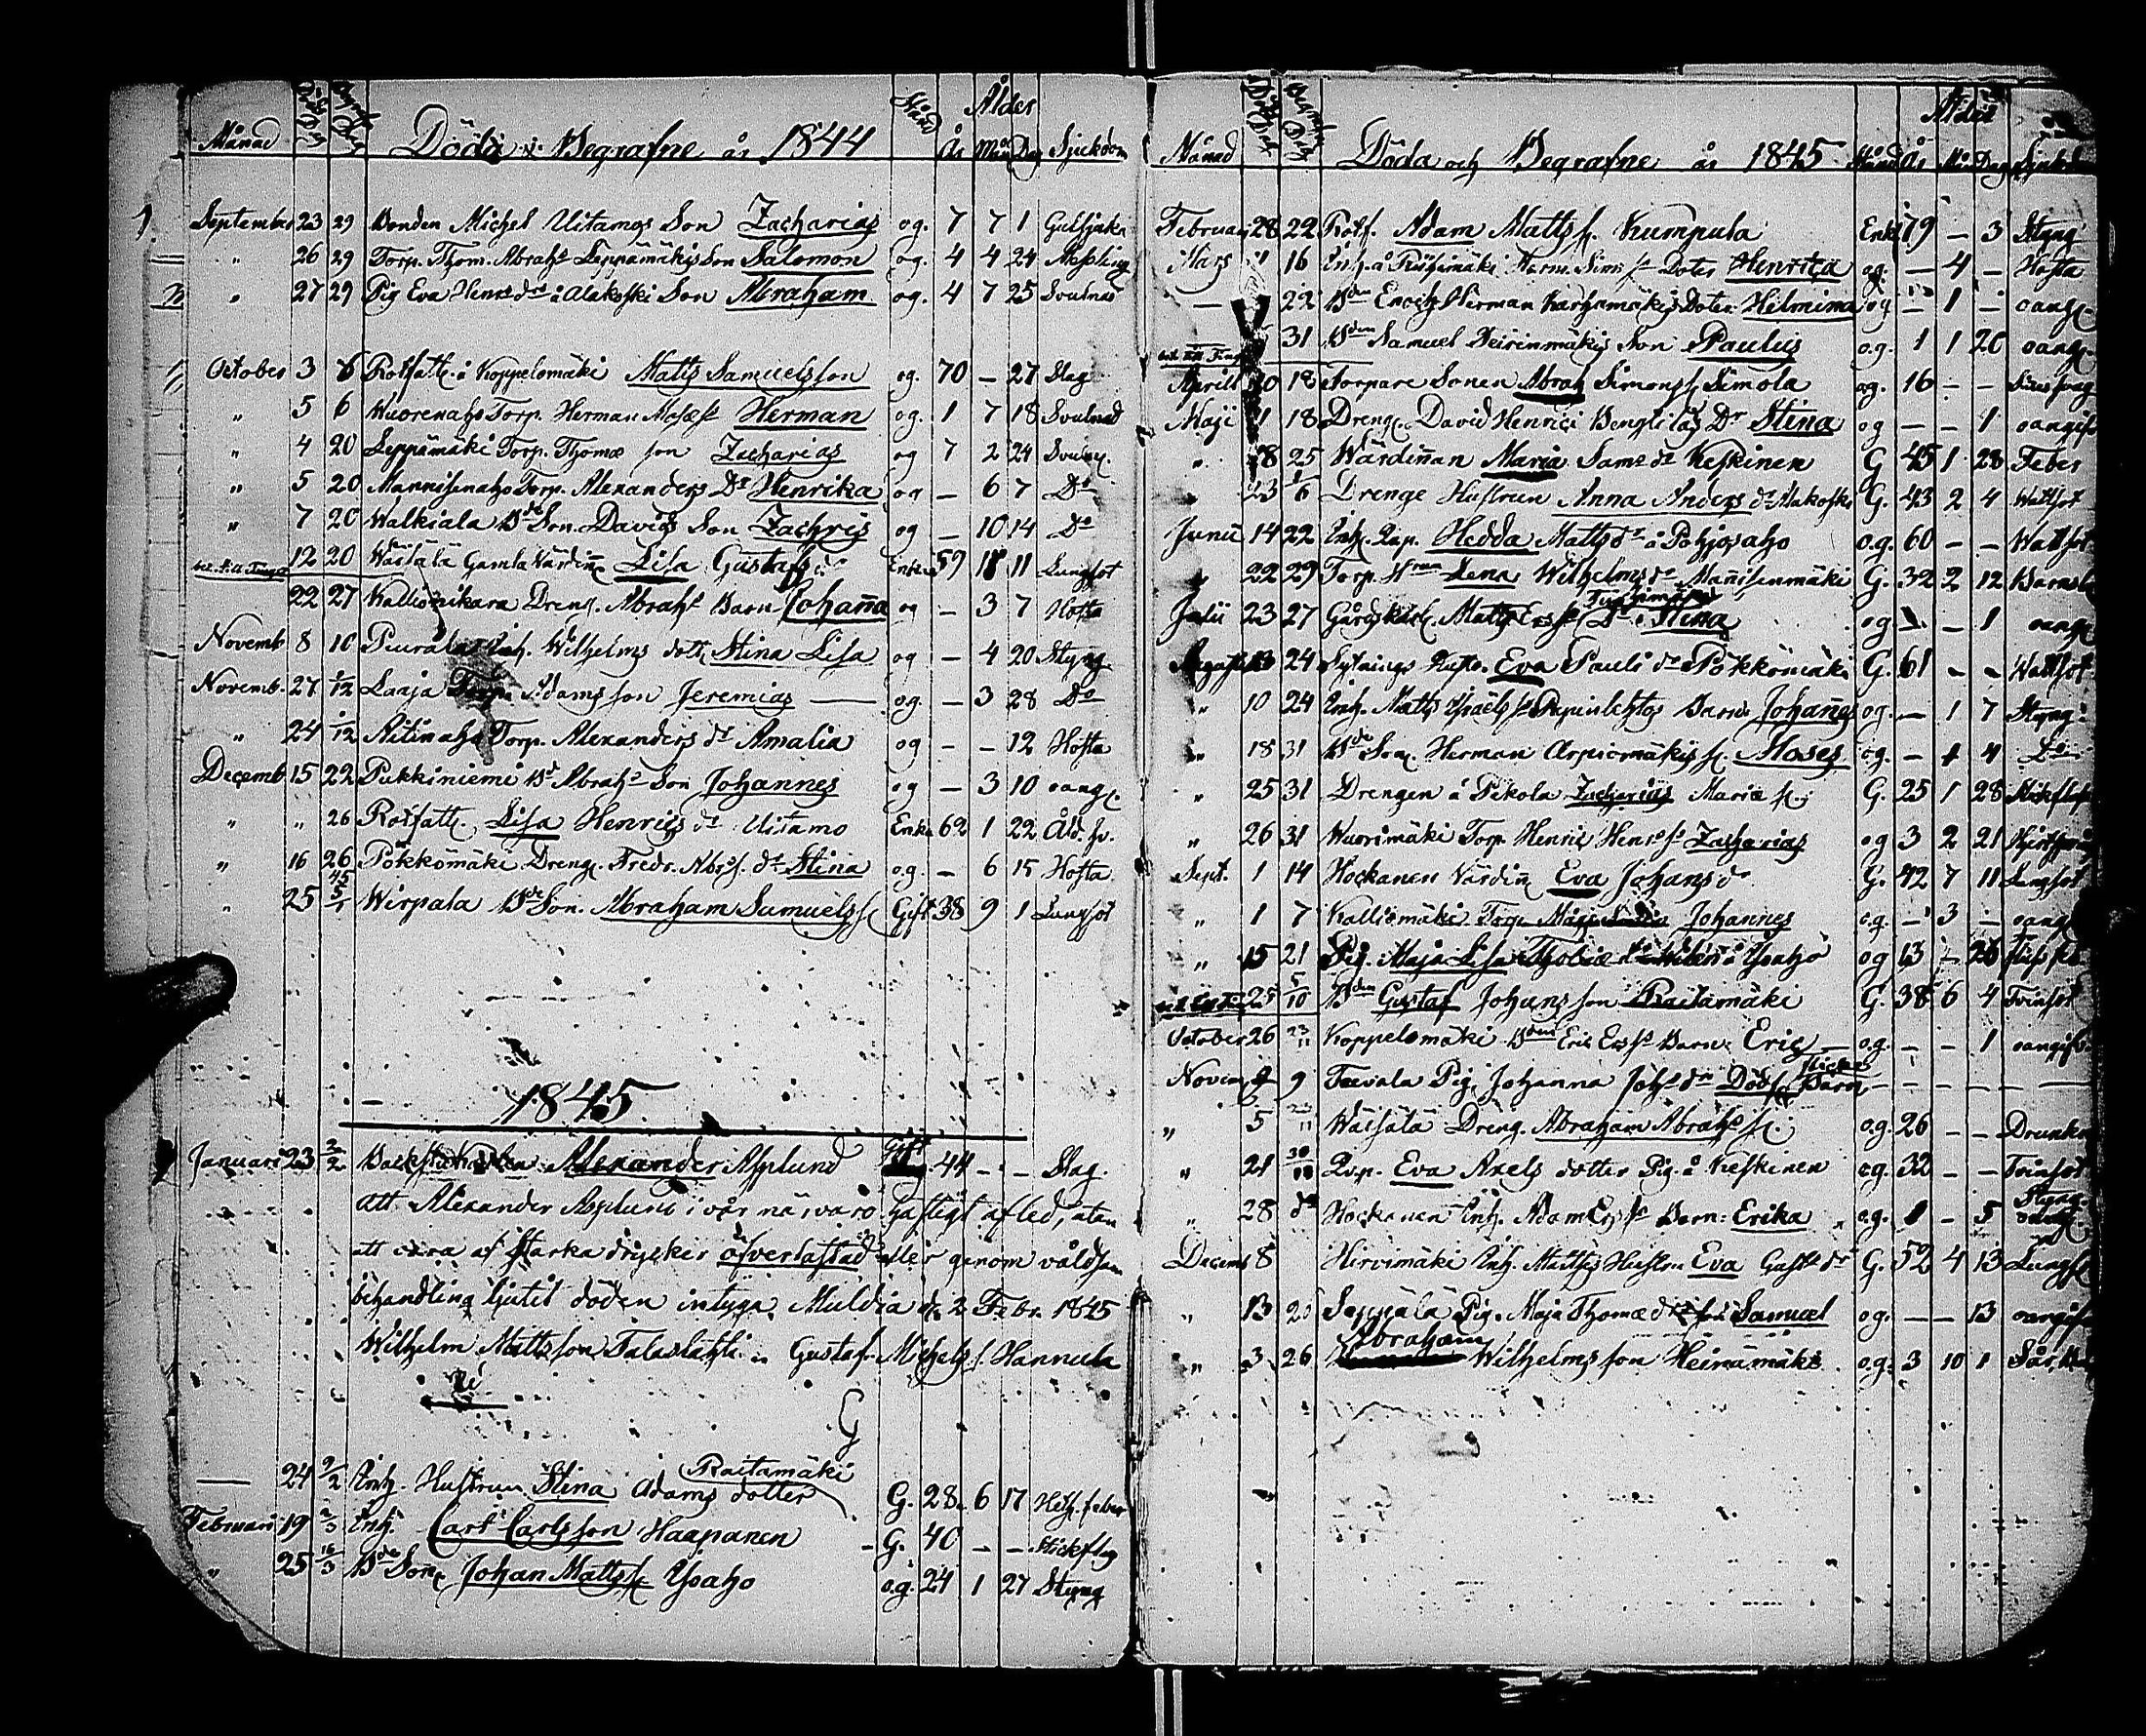 Månad Döda & Begrafne år 1844 Stånd Ålder År Mån Dag Sjukdom
September 23 29 Bonden Michel Uitamos Son Zacharias og. 7 7 1 Gulsjuka
" 26 29 Torp. Thom. Abrahs Leppämäkis Son Salomon og. 4 4 24 Messling
" 27 29 Pig Eva Henrs dr å Alakoski Son Abraham og. 4 7 25 Svulnad
October 3 6 Rotfatt. å Koppelomäki Matts Samuelsson og. 70 – 27 Slag
" 5 6 Wuorenaho Torp. Herman Mosess Herman og. 1 7 18 Svulnad
" 4 20 Leppämäki Torp. Thomæ son Zacharias og 7 2 24
" 5 20 Mannisenaho Torp. Alexanders Dr Henrika og – 6 7 Do
" 7 20 Walkiala Bde Son. Davids Son Zachris og – 10 14 Do
12 20 Wäisälä Gamla Värdin Lisa Gustafs dr Enka 59 11 11 Lungsot
22 27 Kalliomikara Dreng. Abrahs Barn Johanna og – 3 7 Hosta
Novemb 8 10 Piurala Inh. Wilhelms dott. Stina Lisa og – 4 20 Styng.
Novemb. 27 1/12 Laaja Torp. Adams son Jeremias og. – 3 28 Do
" 24 1/12 Aitinaho Torp. Alexanders dr Amalia og – – 12 Hosta
Decemb 15 22 Pukkiniemi Bd Abrahs Son Johannes og – 3 10 oang.
" " 26 Rotfatt. Lisa Henrics dr Uitamo Enka 62 1 22 Åld. sv.
" 16 26 Pökkömäki Dreng. Fredr. Abrs. dr Stina og. – 6 15 Hosta
" 25 45 5/1 Wirpala Bde Son. Abraham Samuelss Gift 38 9 1 Lungsot
1845
Januari 23 2/2 Alexander Asplund Gift 44 – – Slag.
att Alexander Asplund i vår närvaro hastigt afled, utan
att vara af starka drycker öfverlastad eller genom våldsam
behandling ljutit döden intyga Multia d. 2 Febr. 1845
Wilhelm Mattsson Talaslahti Gustaf Michelss. Hannula
— 24 9/2 Inh. Hustrun Stina Adams dotter Raitamäki G. 28 6 17 Het. feber
Februari 19 2/3 Inh. Carl Carlsson Haapanen G. 40 – – Stickflug
" 25 16/3 Bde Son Johan Mattss Ysaho o.g. 24 1 27 Styng
Månad Döda och Begrafne år 1845 Stånd Ålder År Mån Dag Sjukdom
Februari 28 22 Rotf. Adam Matts s. Kumpula Enkl 79 – 3 Styng
Mars 16 Inh. å Riihimäki Herm. Sims s Doter Henrica og. – 4 – Hosta
— 22 Bden Enoch Herman Karhamäkis Doter Helmima og – 1 – oang.
31 Bden Samuel Peiriinmäkis Son Paulus o.g. 1 1 20 oang.
Aprill 10 18 Torpare Sonen Abrah Simonss Simola og. 16 – –
Maji 1 18 Dreng. David Henrici Dr Stina og – – 1 oangif
" 18 25 Wärdinnan Maria Sams dr Keskinen G 45 1 28 Feber
" 23 1/6 Drenge Hustrun Anna Anders dr Alakoski G. 43 2 4 Wattsot
Junii 14 22 Inh. Qvp. Hedda Matts dr å Pohjosaho o.g. 60 – – Wattsot
" 22 29 Torp. Hrun Lena Wilhelms dr Mannisenmäki G. 32 2 12 Barnsb
Julii 23 27 Gårdskarl. Matts Erss Dr Stina og – – 1 oang.
Augusti 13 24 Sytnings Hustr. Eva Pauli dr Pökkömäki G. 61 – – Wattsot
" 10 24 Inh. Matts Israels s Papinlehtos Barn Johannes og. – 1 7 Styng
" 18 31 Bde Son Herman Arpiomäkis s. Moses og. – 1 4 Do
" 25 31 Drengen å Pekola Zacharias Mariæ s. G. 25 1 28 Stickflug
" 26 31 Wuorimäki Torp. Henric Henrs s. Zacharias og 3 2 21
Sept. 1 14 Hockanen Värdin Eva Johans dr G. 42 7 11 Lungsot
" 1 7 Kalliomäki Torp. Johannes o.g. – 3 – oang
" 15 21 Pig. Maja Lisa Thobiæ Ysaho og 13 – 26
25 5/10 Bden Gustaf Johansson Raitamäki G. 38 6 4 Tvinsot
October 26 23/11 Koppelomäki Bden Eric Erss Barn Eric o.g. – – 1 oangif.
Novem 2 9 Teevala Pig. Johanna Johs dr Dödf. Flicke Barn – – – –
" 5 23/11 Wäisälä Dreng. Abraham Abrahs s. o.g. 26 – – Drunkn
" 21 30/11 Qvp. Eva Axels dotter Pig. å Keskinen o.g. 32 – – Tvinsot
" 28 do Hockanen Inh. Adam Erss Barn: Erika o.g. 1 – 5 Styng.
Decemb 8 Hirvimäki Inh. Matts Hustru Eva Gusts dr G. 52 4 13 Lungs
" 13 26 Seppälä Pig. Maja Thomæ dr Son Samuel og. – – 13 oangif
" 3 26 Abraham Wilhelms son Heinämäki o.g. 3 10 1